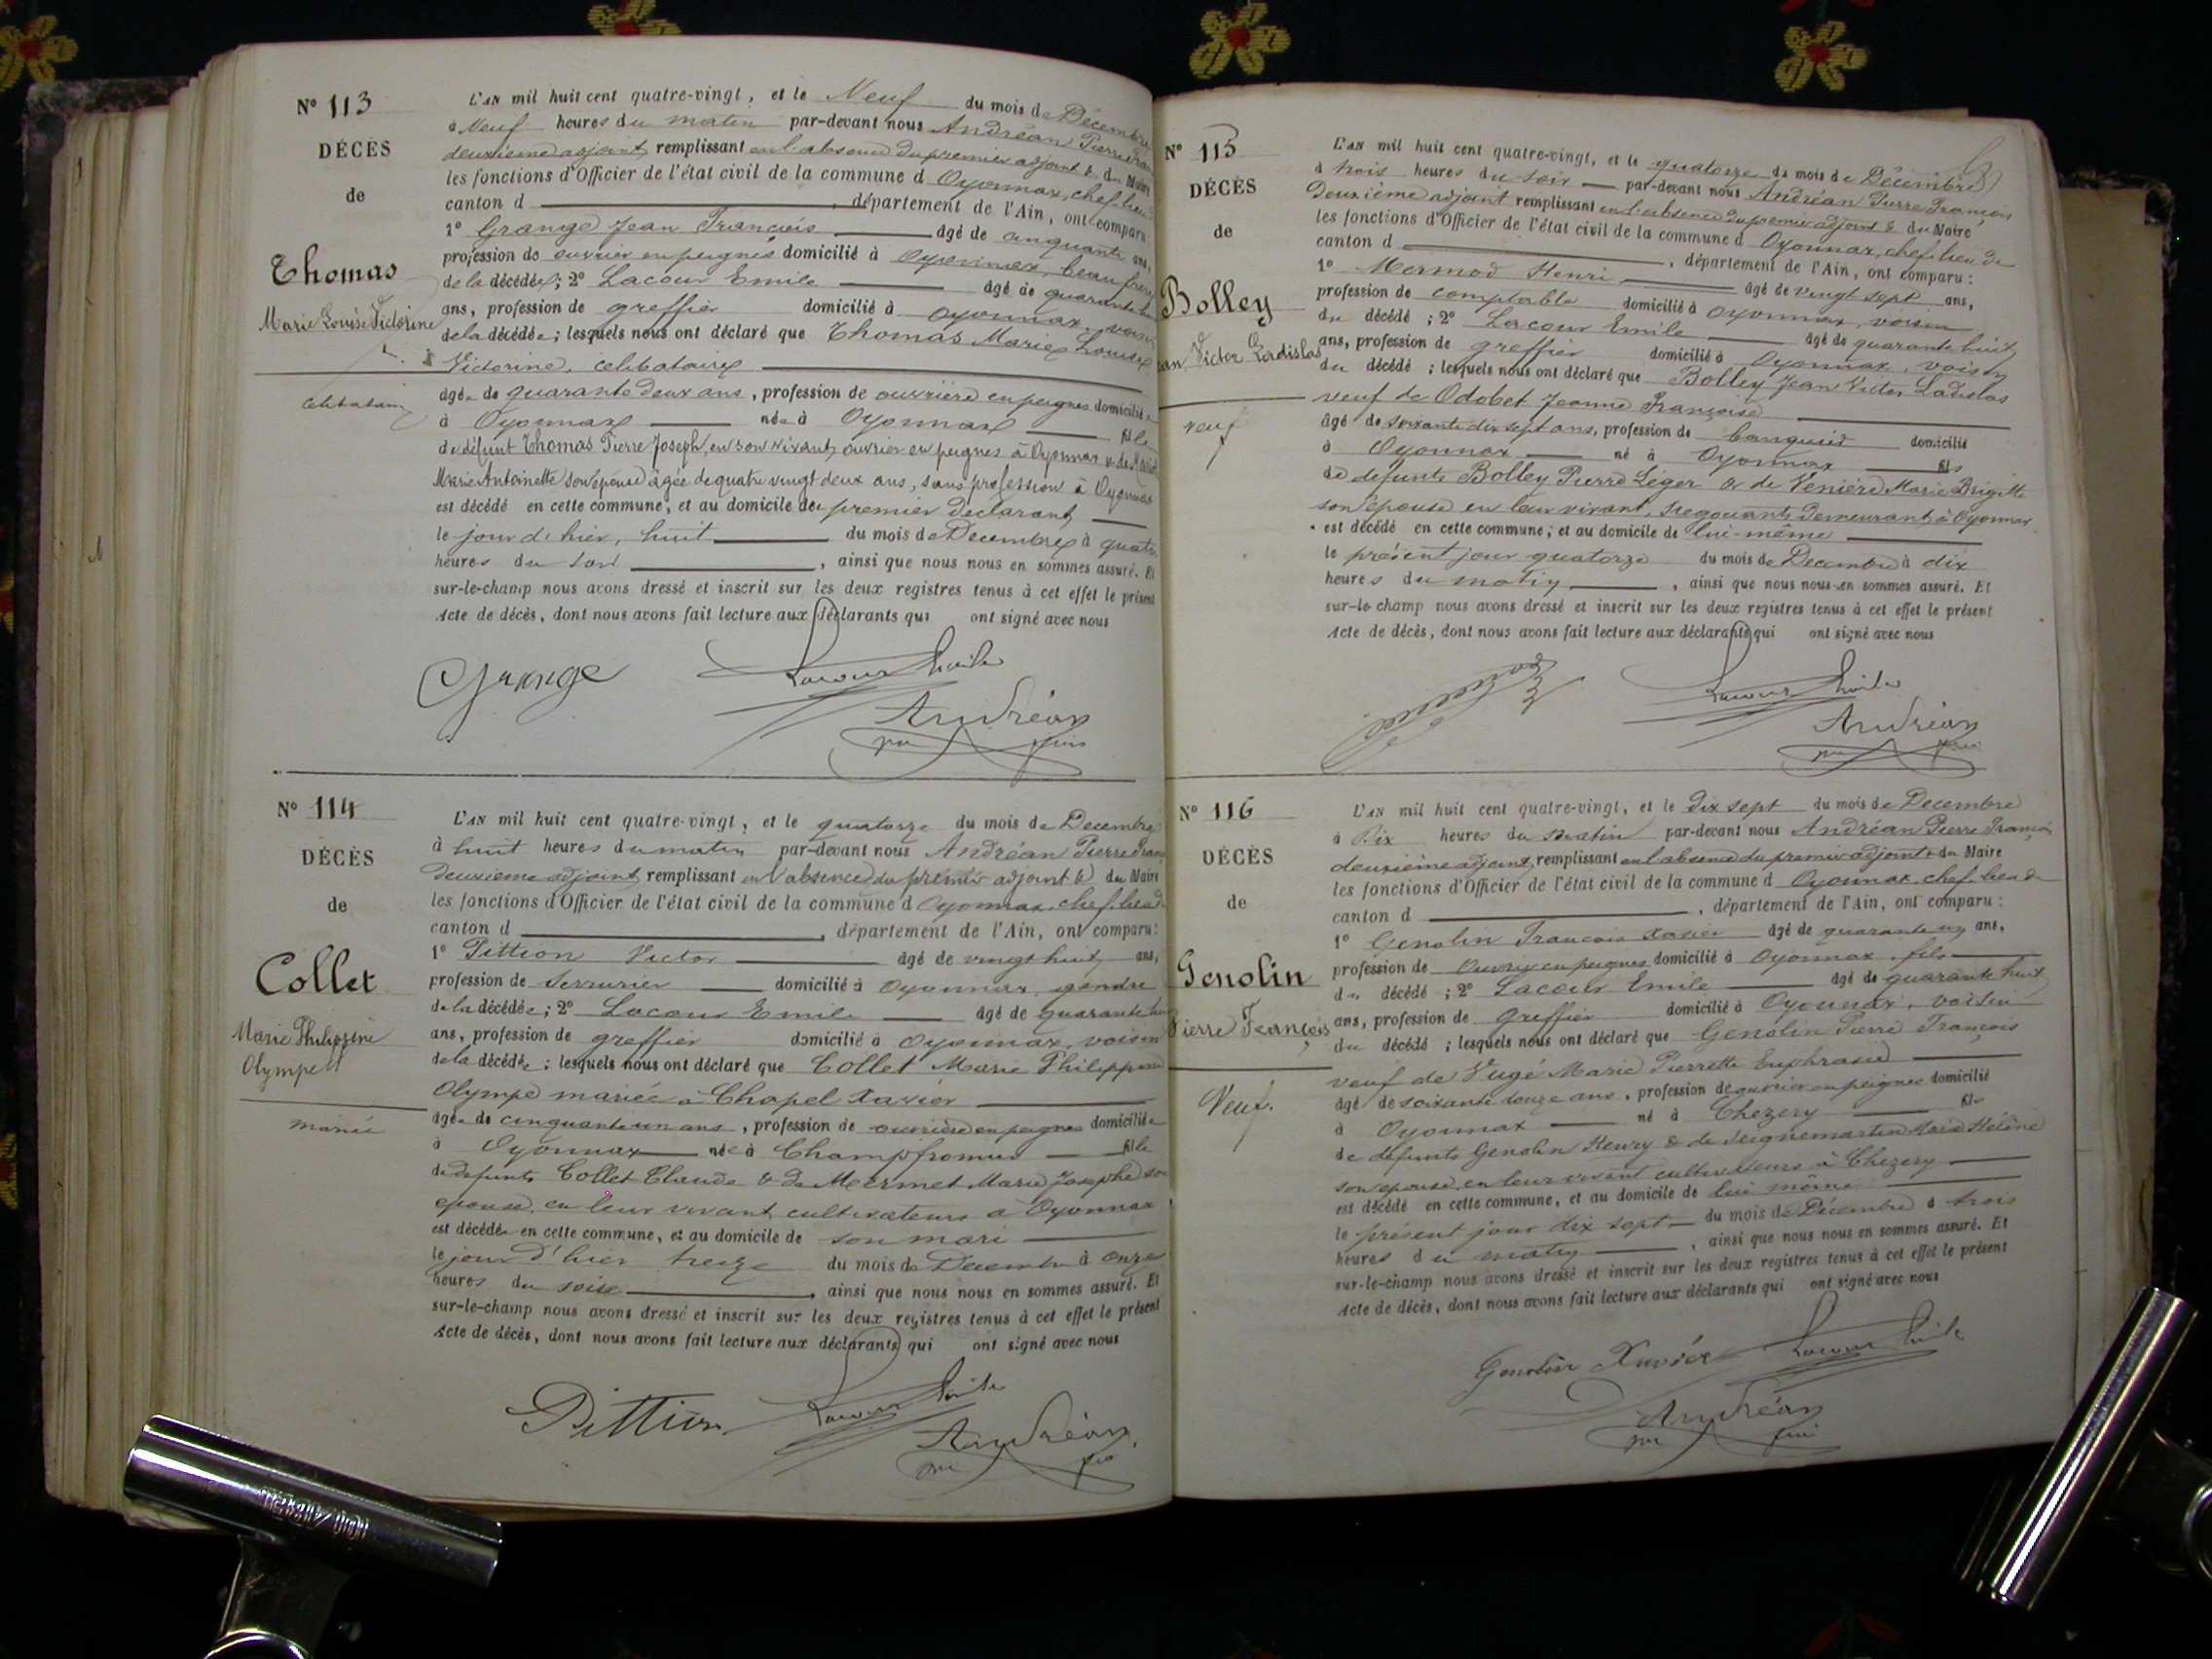 N° 113
DÉCÈS
de
Thomas
Marie Louise Victorine
célibataire
L'AN mil huit cent quatre-vingt, et le Neuf du mois de Décembre
à Neuf heures du matin par-devant nous Andréan Pierre
deuxième adjoint remplissant en l'absence du premier adjoint & du Maire
les fonctions d'Officier de l'état civil de la commune d Oyonnax, chef-lieu
canton d , département de l'Ain, ont comparu:
1° Grange Jean François âgé de cinquante ans,
profession de ouvrier en peignes domicilié à Oyonnax, beau frère
de la décédée; 2° Lacour Emile âgé de quarante
ans, profession de greffier domicilié à Oyonnax, voisin
de la décédée; lesquels nous ont déclaré que Thomas Marie Louise
Victorine, célibataire
âgée de quarante deux ans, profession de ouvrière en peignes domiciliée
à Oyonnax née à Oyonnax fille
de défunt Thomas Pierre Joseph, en son vivant, ouvrier en peignes à Oyonnax & de
Marie Antoinette son épouse âgée de quatre vingt deux ans, sans profession à Oyonnax
est décédé en cette commune, et au domicile du premier déclarant
le jour d'hier, huit du mois de Décembre à quatre
heures du soir , ainsi que nous nous en sommes assuré. Et
sur-le-champ nous avons dressé et inscrit sur les deux registres tenus à cet effet le présent
Acte de décès, dont nous avons fait lecture aux déclarants qui ont signé avec nous
Grange Lacour Emile
Andréan
N° 114
DÉCÈS
de
Collet
Marie Philippine
Olympe
mariée
L'AN mil huit cent quatre-vingt, et le quatorze du mois de Décembre
à huit heures du matin par-devant nous Andréan Pierre
Deuxième adjoint remplissant en l'absence du premier adjoint & du Maire
les fonctions d'Officier de l'état civil de la commune d Oyonnax, chef-lieu d
canton d , département de l'Ain, ont comparu:
1° Pittion Victor âgé de vingt huit ans,
profession de Serrurier domicilié à Oyonnax, gendre
de la décédée; 2° Lacour Emile âgé de quarante
ans, profession de greffier domicilié à Oyonnax, voisin
de la décédée; lesquels nous ont déclaré que Collet Marie Philippine
Olympe mariée à Chapel Xavier
âgée de cinquante un ans, profession de ouvrière en peignes domiciliée
à Oyonnax née à Champfromier fille
de défunts Collet Claude & de Mermet Marie Josephe son
épouse, en leur vivant cultivateurs à Oyonnax
est décédée en cette commune, et au domicile de son mari
le jour d'hier treize du mois de Décembre à onze
heures du soir , ainsi que nous nous en sommes assuré. Et
sur-le-champ nous avons dressé et inscrit sur les deux registres tenus à cet effet le présent
Acte de décès, dont nous avons fait lecture aux déclarants qui ont signé avec nous
Pittion Lacour Emile
Andréan
N° 115
DÉCÈS
de
Bolley
Victor Ladislas
veuf
L'AN mil huit cent quatre-vingt, et le quatorze du mois de Décembre
à trois heures du soir par-devant nous Andréan Pierre François
Deuxième adjoint remplissant en l'absence du premier adjoint & du Maire
les fonctions d'Officier de l'état civil de la commune d Oyonnax, chef-lieu de
canton d , département de l'Ain, ont comparu:
1° Mermod Henri âgé de vingt sept ans,
profession de comptable domicilié à Oyonnax, voisin
du décédé; 2° Lacour Emile âgé de quarante huit
ans, profession de greffier domicilié à Oyonnax, voisin
du décédé; lesquels nous ont déclaré que Bolley Jean Victor Ladislas
veuf de Odobet Jeanne Françoise
âgé de soixante dix sept ans, profession de banquier domicilié
à Oyonnax né à Oyonnax fils
de défunts Bolley Pierre Léger & de Venière Marie Brigitte
son épouse en leur vivant, négociants demeurant à Oyonnax
est décédé en cette commune, et au domicile de lui-même
le présent jour quatorze du mois de Décembre à dix
heures du matin , ainsi que nous nous en sommes assuré. Et
sur-le-champ nous avons dressé et inscrit sur les deux registres tenus à cet effet le présent
Acte de décès, dont nous avons fait lecture aux déclarants qui ont signé avec nous
Lacour Emile
Andréan
N° 116
DÉCÈS
de
Genolin
Pierre François
Veuf.
L'AN mil huit cent quatre-vingt, et le dix sept du mois de Décembre
à Dix heures du matin par-devant nous Andréan Pierre François
deuxième adjoint, remplissant en l'absence du premier adjoint & du Maire
les fonctions d'Officier de l'état civil de la commune d Oyonnax, chef-lieu de
canton d , département de l'Ain, ont comparu:
1° Genolin François Xavier âgé de quarante un ans,
profession de Ouvrier en peignes domicilié à Oyonnax, fils
du décédé; 2° Lacour Emile âgé de quarante huit
ans, profession de greffier domicilié à Oyonnax, voisin
du décédé; lesquels nous ont déclaré que Genolin Pierre François
veuf de Vugé Marie Pierrette Euphrasie
âgé de soixante douze ans, profession de ouvrier en peignes domicilié
à Oyonnax né à Chezery fils
de défunts Genolin Henry & de Seignemartin Marie Hélène
son épouse, en leur vivant cultivateurs à Chezery
est décédé en cette commune, et au domicile de lui même
le présent jour dix sept du mois de Décembre à trois
heures du matin , ainsi que nous nous en sommes assuré. Et
sur-le-champ nous avons dressé et inscrit sur les deux registres tenus à cet effet le présent
Acte de décès, dont nous avons fait lecture aux déclarants qui ont signé avec nous
Genolin Xavier Lacour Emile
Andréan